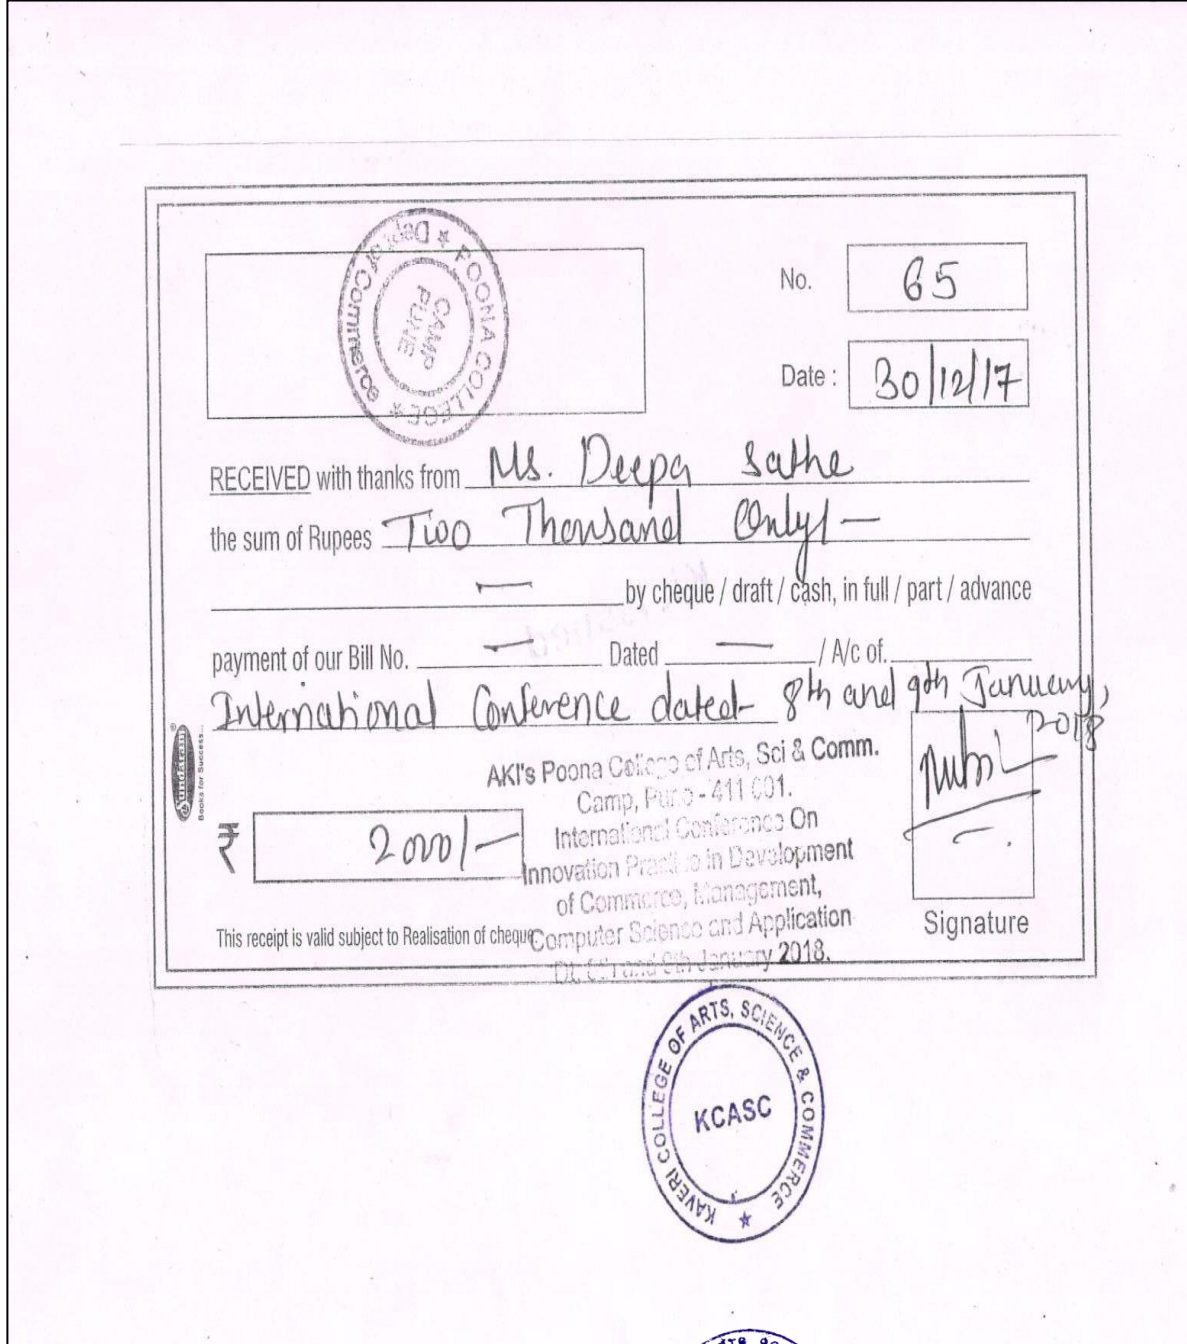 Dept. of Commerce * POONA COLLEGE *
CAMP
PUNE
No. 65
Date : 30/12/17
RECEIVED with thanks from Ms. Deepa Sathe
the sum of Rupees Two Thousand Only/-
— by cheque / draft / cash, in full / part / advance
payment of our Bill No. — Dated — / A/c of.
International Conference dated 8th and 9th January,
2018
Sundaram
Books for Success...
AKI's Poona College of Arts, Sci & Comm.
Camp, Pune - 411 001.
International Conference On
Innovation Practice in Development
of Commerce, Management,
Computer Science and Application
Dt. 8th and 9th January 2018.
₹ 2000/-
This receipt is valid subject to Realisation of cheque
Signature
KAVERI COLLEGE OF ARTS, SCIENCE & COMMERCE
KCASC